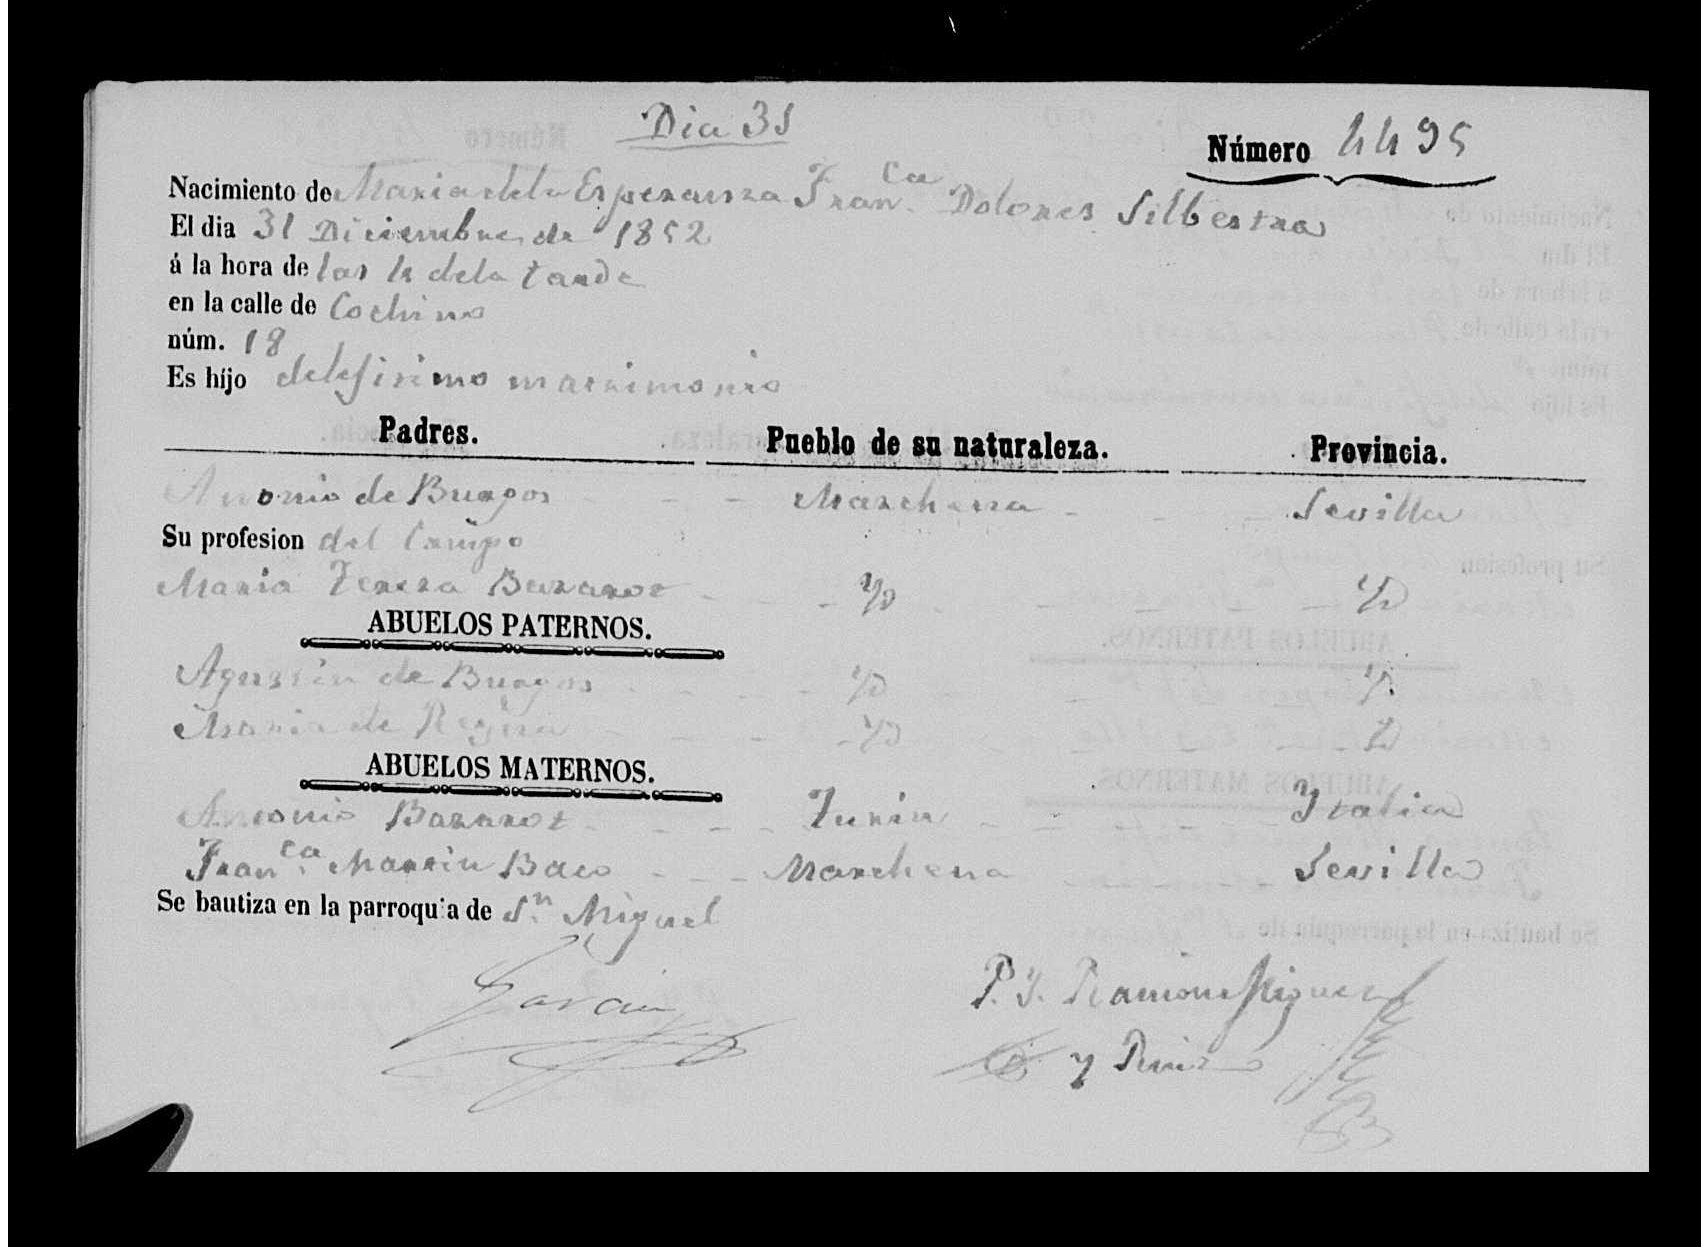 Dia 31
Número 4495
Nacimiento de Maria dela Esperanza Fran.ca Dolores Silbestra
El dia 31 Diciembre de 1852
á la hora de las 4 dela tarde
en la calle de Cochino
núm. 18
Es hijo delegitimo matrimonio
Padres. Pueblo de su naturaleza. Provincia.
Antonio de Burgos - - Marchena - - - Sevilla
Su profesion del Campo
Maria Teresa - - - Yd - - - - Yd
ABUELOS PATERNOS.
Agustin de Burgos - - - - Yd - - - - Yd
Maria de Regina - - - - - Yd - - - - Yd
ABUELOS MATERNOS.
Antonio - - - - Turin - - - - Ytalia
Fran.ca Martin Baco - - - Marchena - - - - Sevilla
Se bautiza en la parroquia de Sn. Miguel
Garcia
P. Y. Ramon Miguez
y Ruiz